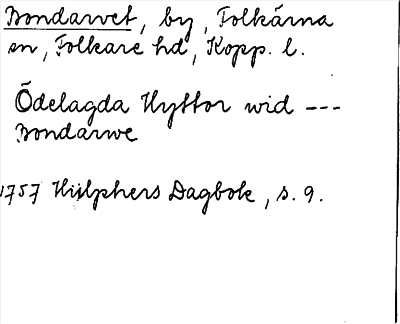 Bondarvet, by, Folkärna
sn, Folkare hd, Kopp. l.
Ödelagda Hyttor wid ---
Bondarwe
1757 Hülphers Dagbok, s. 9.